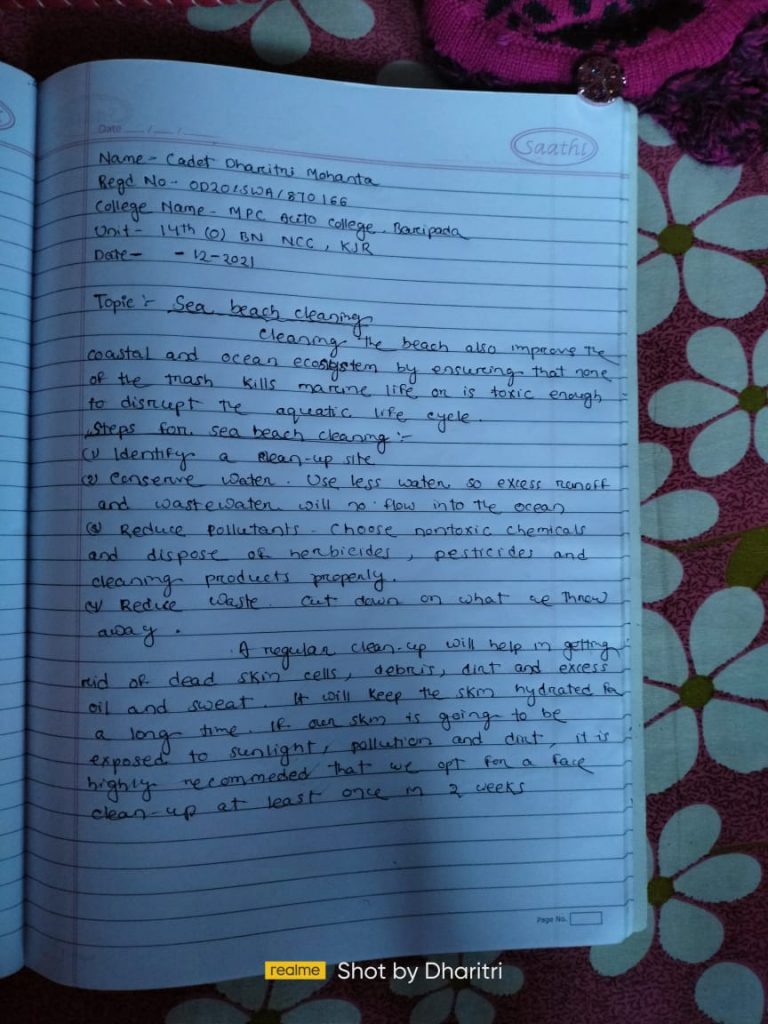 Date __/__/____
Saathi
Name- Cadet Dharitri Mohanta
Regd No- OD20/SWA/870166
College Name- MPC Auto College, Baripada
Unit- 14th (O) BN NCC, KJR
Date- -12-2021
Topic :- Sea beach cleaning
Cleaning the beach also improve the
coastal and ocean ecosystem by ensuring that none
of the trash kills marine life or is toxic enough
to disrupt the aquatic life cycle.
Steps for sea beach cleaning :-
(1) Identify a clean-up site
(2) Conserve water. Use less water so excess runoff
and wastewater will no flow into the ocean
(3) Reduce pollutants - Choose nontoxic chemicals
and dispose of herbicides, pesticides and
cleaning products properly.
(4) Reduce waste. Cut down on what we throw
away.
A regular clean-up will help in getting
rid of dead skin cells, debris, dirt and excess
oil and sweat. It will keep the skin hydrated for
a long time. If our skin is going to be
exposed to sunlight, pollution and dirt, it is
highly recommeded that we opt for a face
clean-up at least once in 2 weeks
Page No.
realme Shot by Dharitri